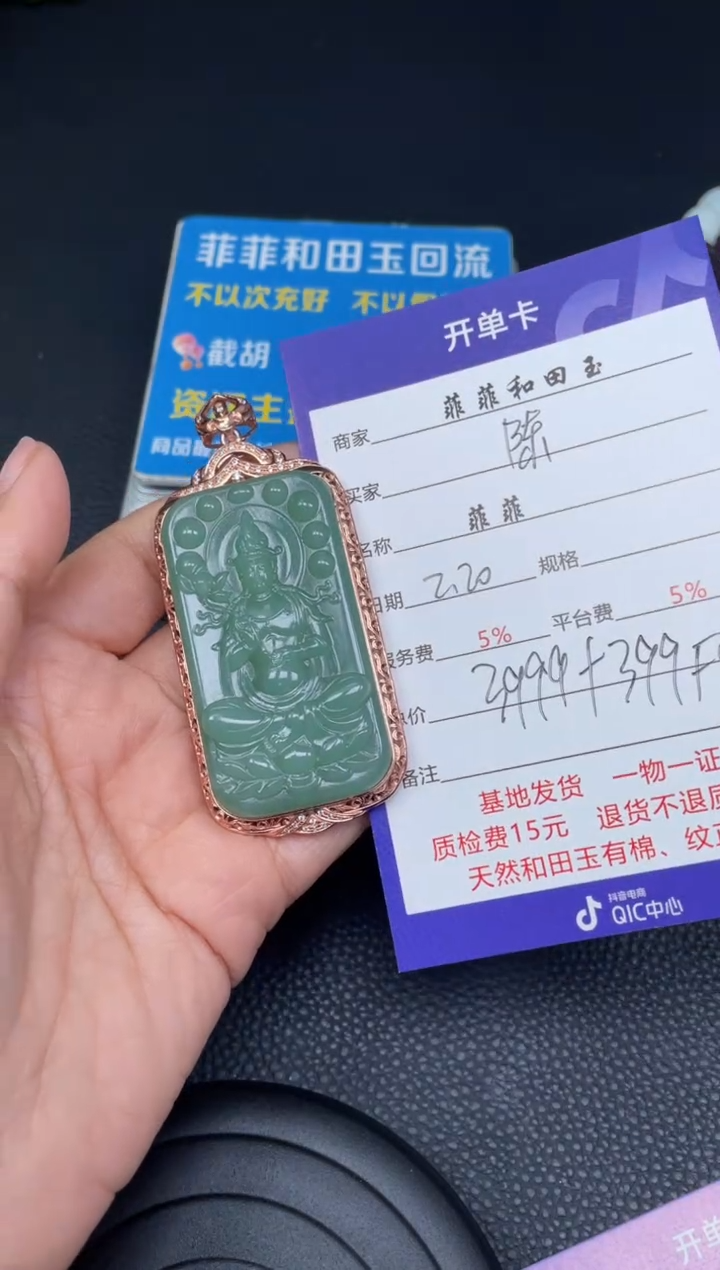 菲菲和田玉回流
不以次充好 不以
截胡
开单卡
商家 菲菲和田玉
买家 陈
名称 菲菲
日期 2.20 规格
服务费 5% 平台费 5%
价 2999+399
备注
基地发货 一物一证
质检费15元 退货不退
天然和田玉有棉、纹
抖音电商
QIC中心
开单